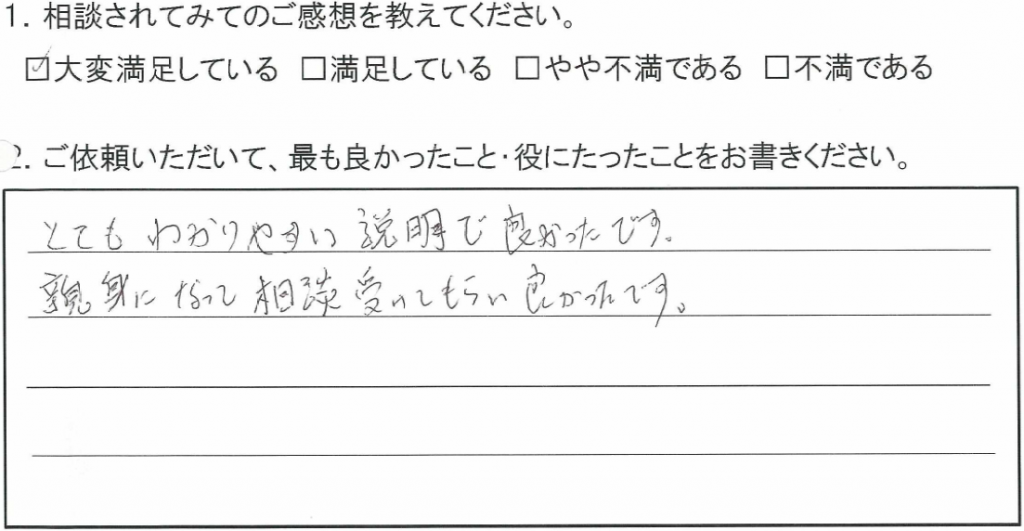 1. 相談されてみてのご感想を教えてください。
☑大変満足している □満足している □やや不満である □不満である
2. ご依頼いただいて、最も良かったこと・役にたったことをお書きください。
とてもわかりやすい説明で良かったです。
親身になって相談受けてもらい良かったです。